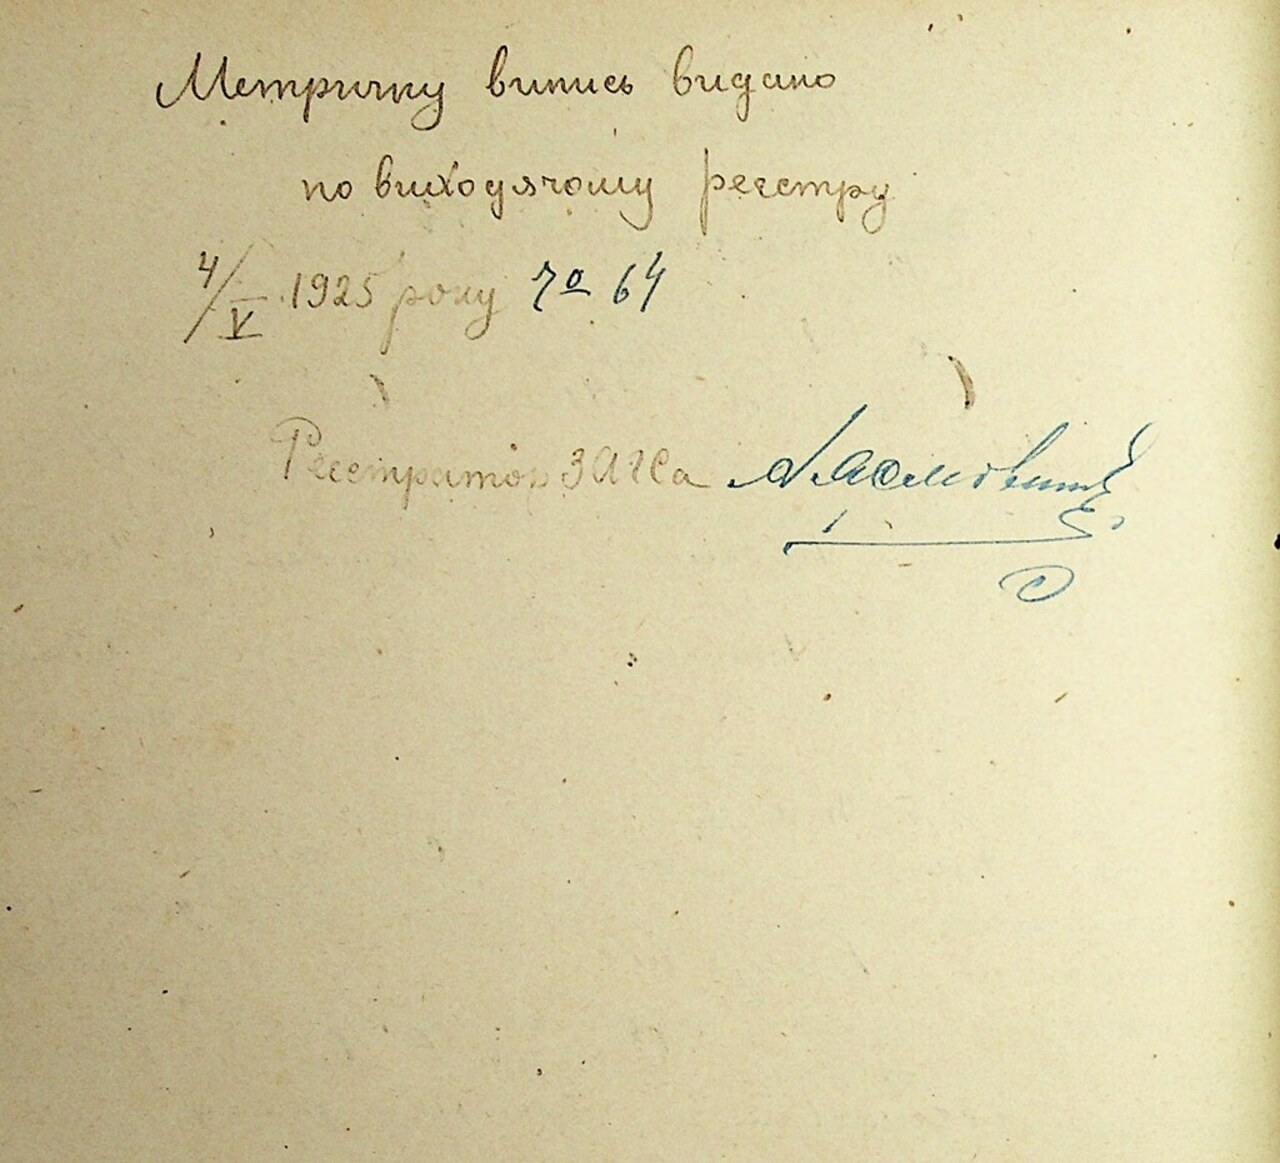 Метричну випись видано
по виходячому реєстру
4/V 1925 року № 64
Реєстратор ЗАГСа